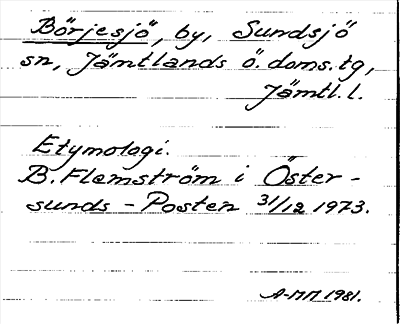 Börjesjö, by, Sundsjö
sn, Jämtlands ö. doms.tg,
Jämtl. l.
Etymologi.
B. Flemström i Öster-
sunds-Posten 31/12 1973.
A-MM 1981.